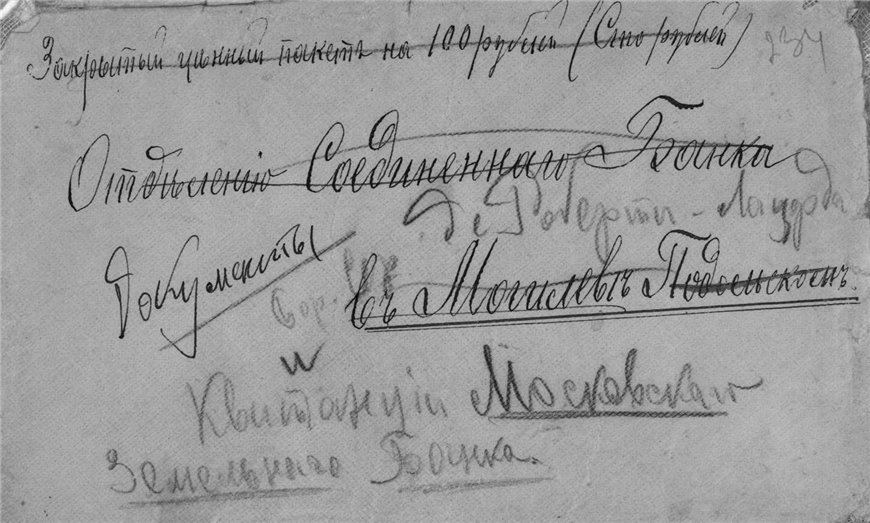 Закрытый цѣнный пакетъ на 100 рублей (Сто рублей)
234
Отдѣленію Соединеннаго Банка
Де Роберти-
Документы
въ Могилевѣ Подольскомъ.
и
Квитанціи Московскаго
Земельнаго Банка.